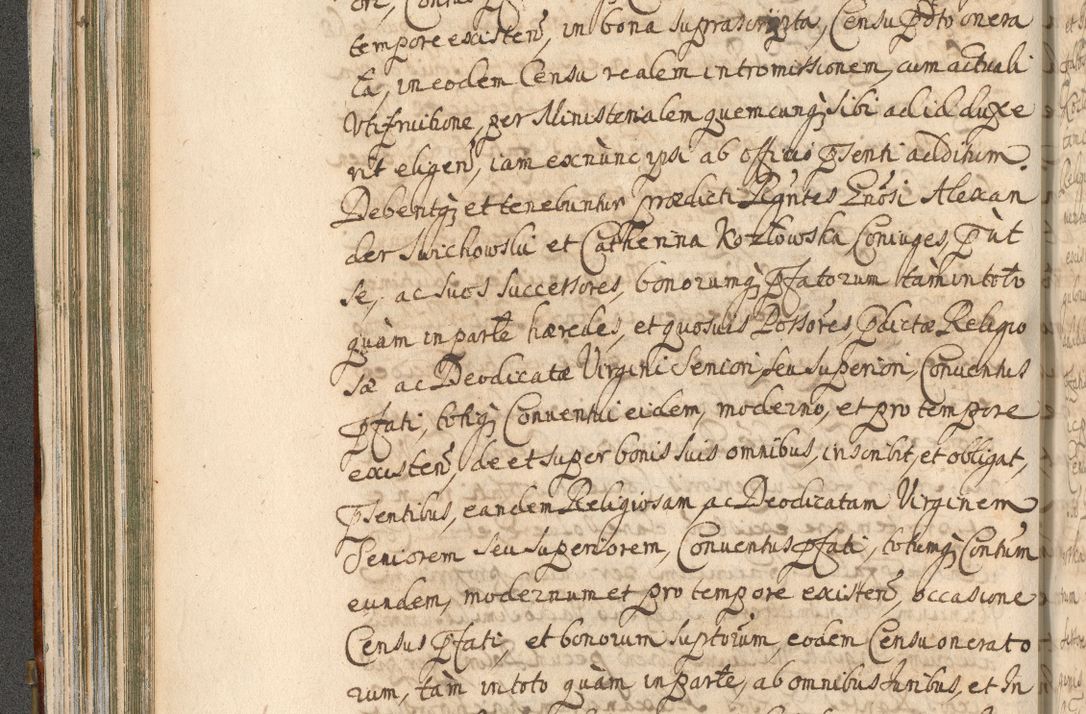 tempore existen, in bona suprascripta, Censu pdto onera
ta, in eodem Censu realem intromissionem, cum actuali
Vtifruitione, per Ministerialem quemcunq; sibi ad id duxe
rit eligen, iam exnunc ipsi ab officio psenti additum.
Debentq; et tenebuntur prædicti Rgntes Gnosi Alexan
der Suichowski et Catherina Kozłowska Coniuges, put
se, ac suos successores, bonorumq; pfatorum tàm in toto
quàm in parte hæredes, et quosuis Possores, pdictæ Religio
sæ ac Deodicatæ Virgini Seniori, seu superiori, Conuentus
pfati, totiq; Conuentui eidem, moderno, et pro tempore
existen, de et super bonis suis omnibus, inscribit, et obligat,
psentibus, eandem Religiosam ac Deodicatam Virginem
Seniorem seu superiorem, Conuentus pfati, totumq; Contum
eundem, modernum et pro tempore existen, occasione
Census pfati, et bonorum suptorum, eodem Censu onerato
rum, tàm in toto quàm in parte, ab omnibus Iuribus, et In